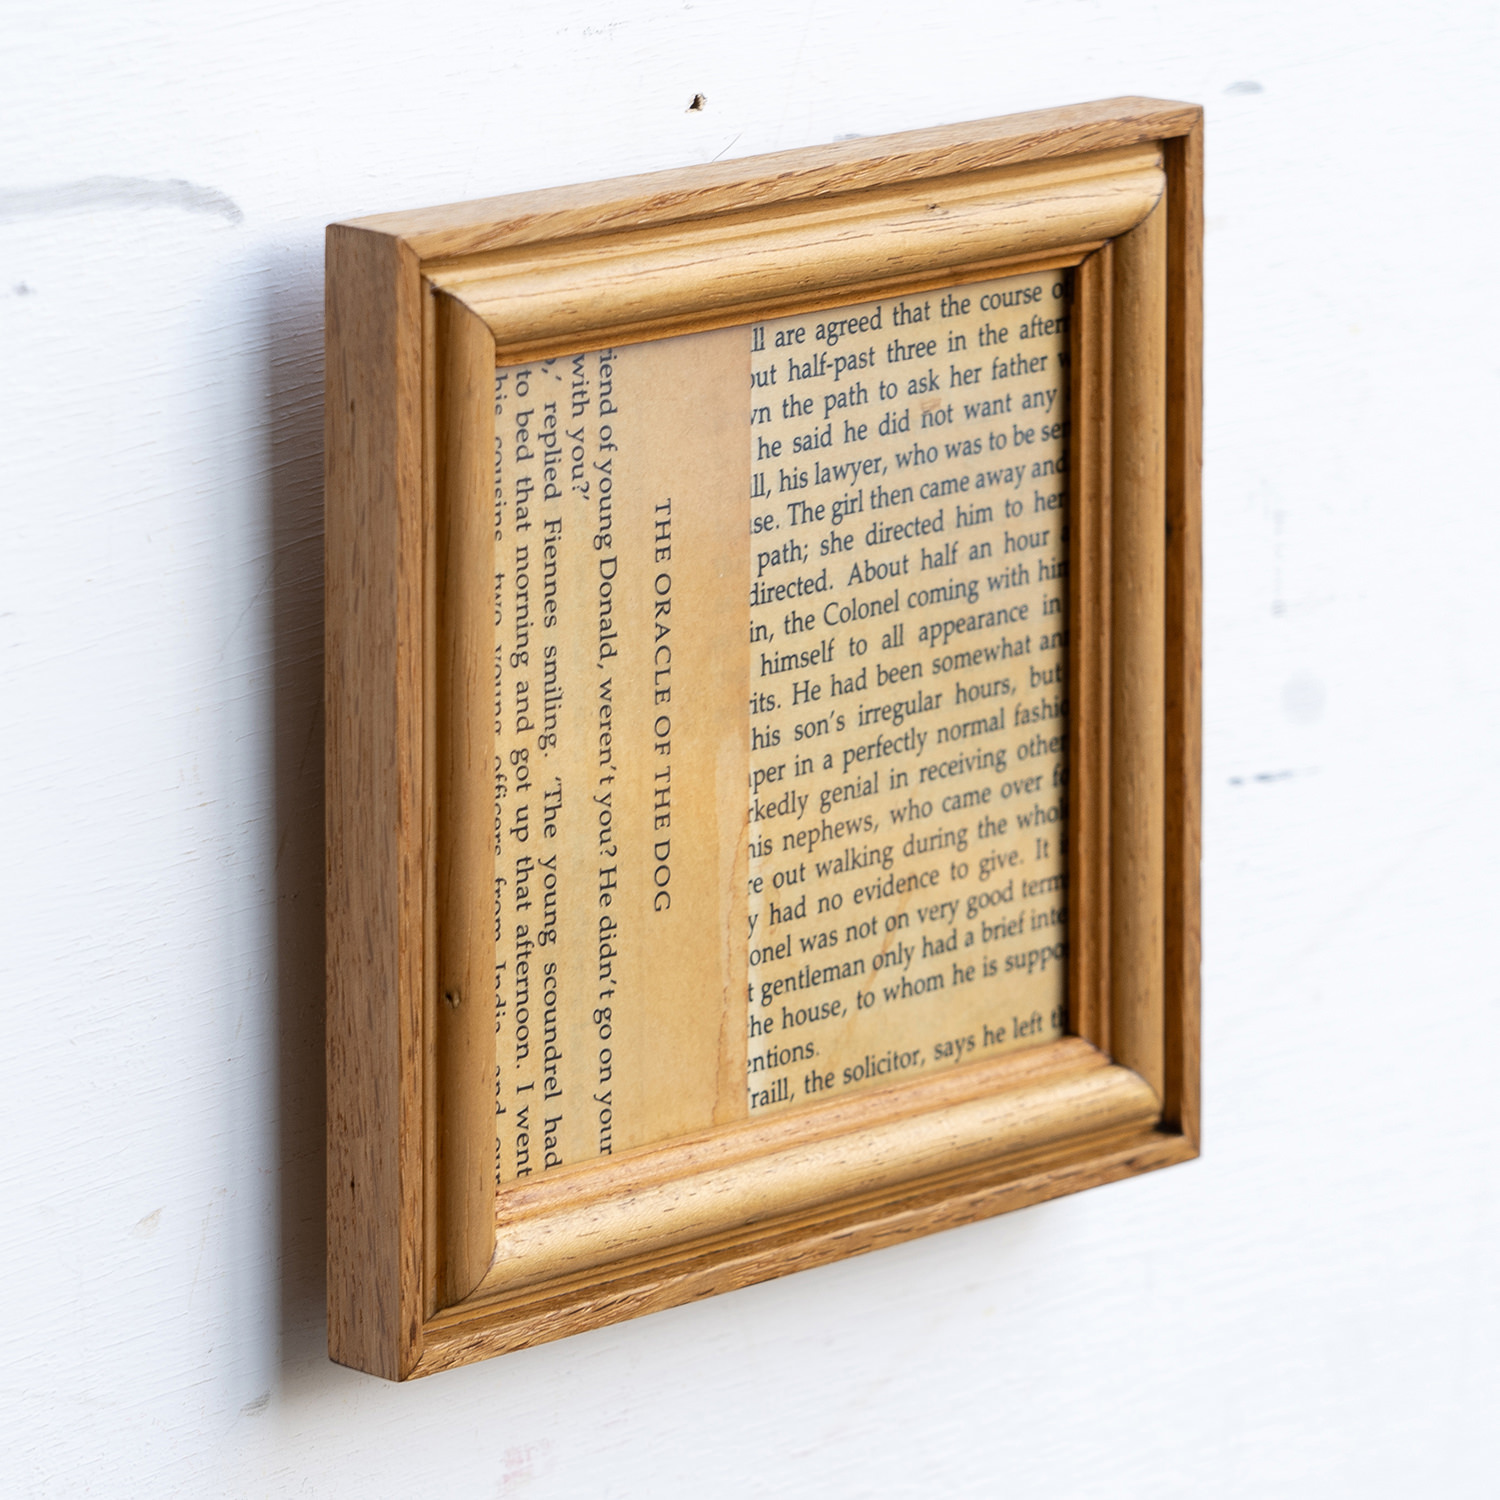 THE ORACLE OF THE DOG
riend of young Donald, weren't you? He didn't go on your
with you?'
,' replied Fiennes smiling. 'The young scoundrel had
to bed that morning and got up that afternoon. I went
his cousins, two young officers from India, and our
ll are agreed that the course o
out half-past three in the after
wn the path to ask her father w
he said he did not want any
ll, his lawyer, who was to be se
se. The girl then came away and
path; she directed him to her
directed. About half an hour
in, the Colonel coming with hi
himself to all appearance in
rits. He had been somewhat an
his son's irregular hours, but
per in a perfectly normal fashi
rkedly genial in receiving othe
his nephews, who came over f
re out walking during the who
y had no evidence to give. It
onel was not on very good term
t gentleman only had a brief inte
he house, to whom he is suppo
entions.
raill, the solicitor, says he left th